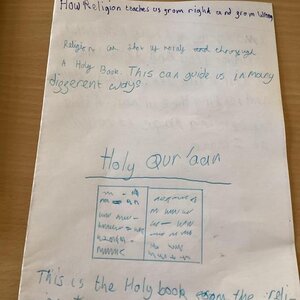 How Religion teaches us grom right and grom Wrong
Religion can show up mainly and through
A Holy Book. This can guide us in many
diggerent ways.
Holy Qur'aan
This is the Holy book from the reli